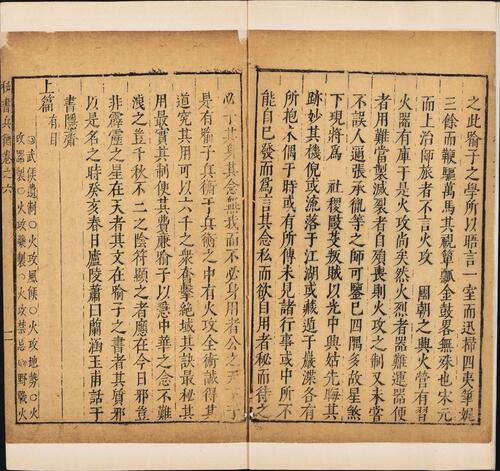 之此喻子之學所以踞言一室而迅掃四夷筆娖
三餘而鞭驅萬馬其視簞瓢金鼓畧無殊也宋元
而上治師旅者不言火攻　國朝之興火營有習
火器有庫于是火攻尚矣然火烈者器難運器便
者用難當製滅裂者自殞喪則火攻之制又未嘗
不誤人邇張承龍等之師可鑒巳四隅多故星煞
下現將爲　社稷毆芟叛賊以光中興姑先晦其
跡妙其機倪或流落于江湖或藏遁于巖澤各有
所抱木偶于時或有所傳未見諸行事或中所不
能自巳發而爲言其念私而欲自用者秘而待之
必于其身其念無我而不必身用者公之天下于
是有喻子兵衛于兵衛之中有火攻全術識得其
道究其用可以六千之衆奮擊絶域其訣最秘其
用最實其制使其費廉喻子以憂中華之念不難
洩之豈千秋不二之陰符顯之者應在今日邪豈
非霹靂之星在天者其文在喻子之書者其質邪
以是名之時癸亥春日廬陵蕭曰蘭涵玉甫話于
書隱齋
上篇有目
武侯遺制〇火攻風候〇火攻地勢〇火
攻器製〇火攻藥製〇火攻禁忌〇野戰火
秘書兵衡卷之六
二